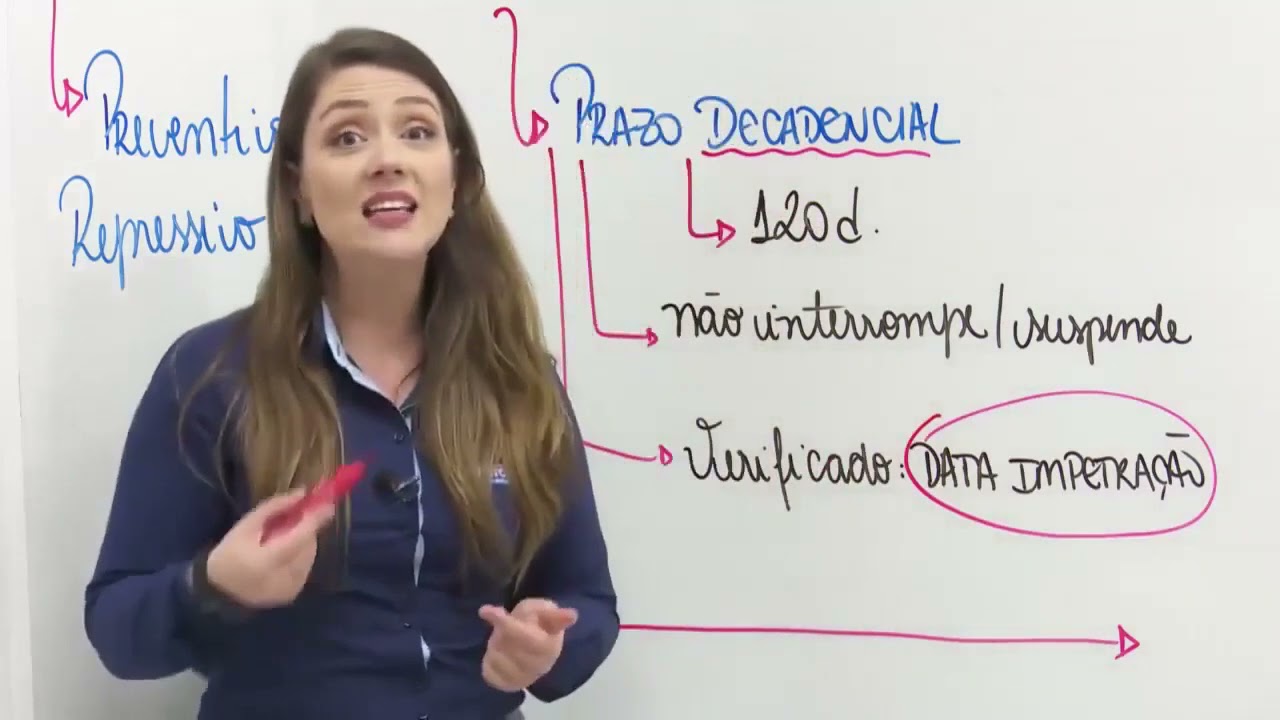 Preventi
Repressivo
PRAZO DECADENCIAL
120d.
não interrompe/suspende
Verificado: DATA IMPETRAÇÃO